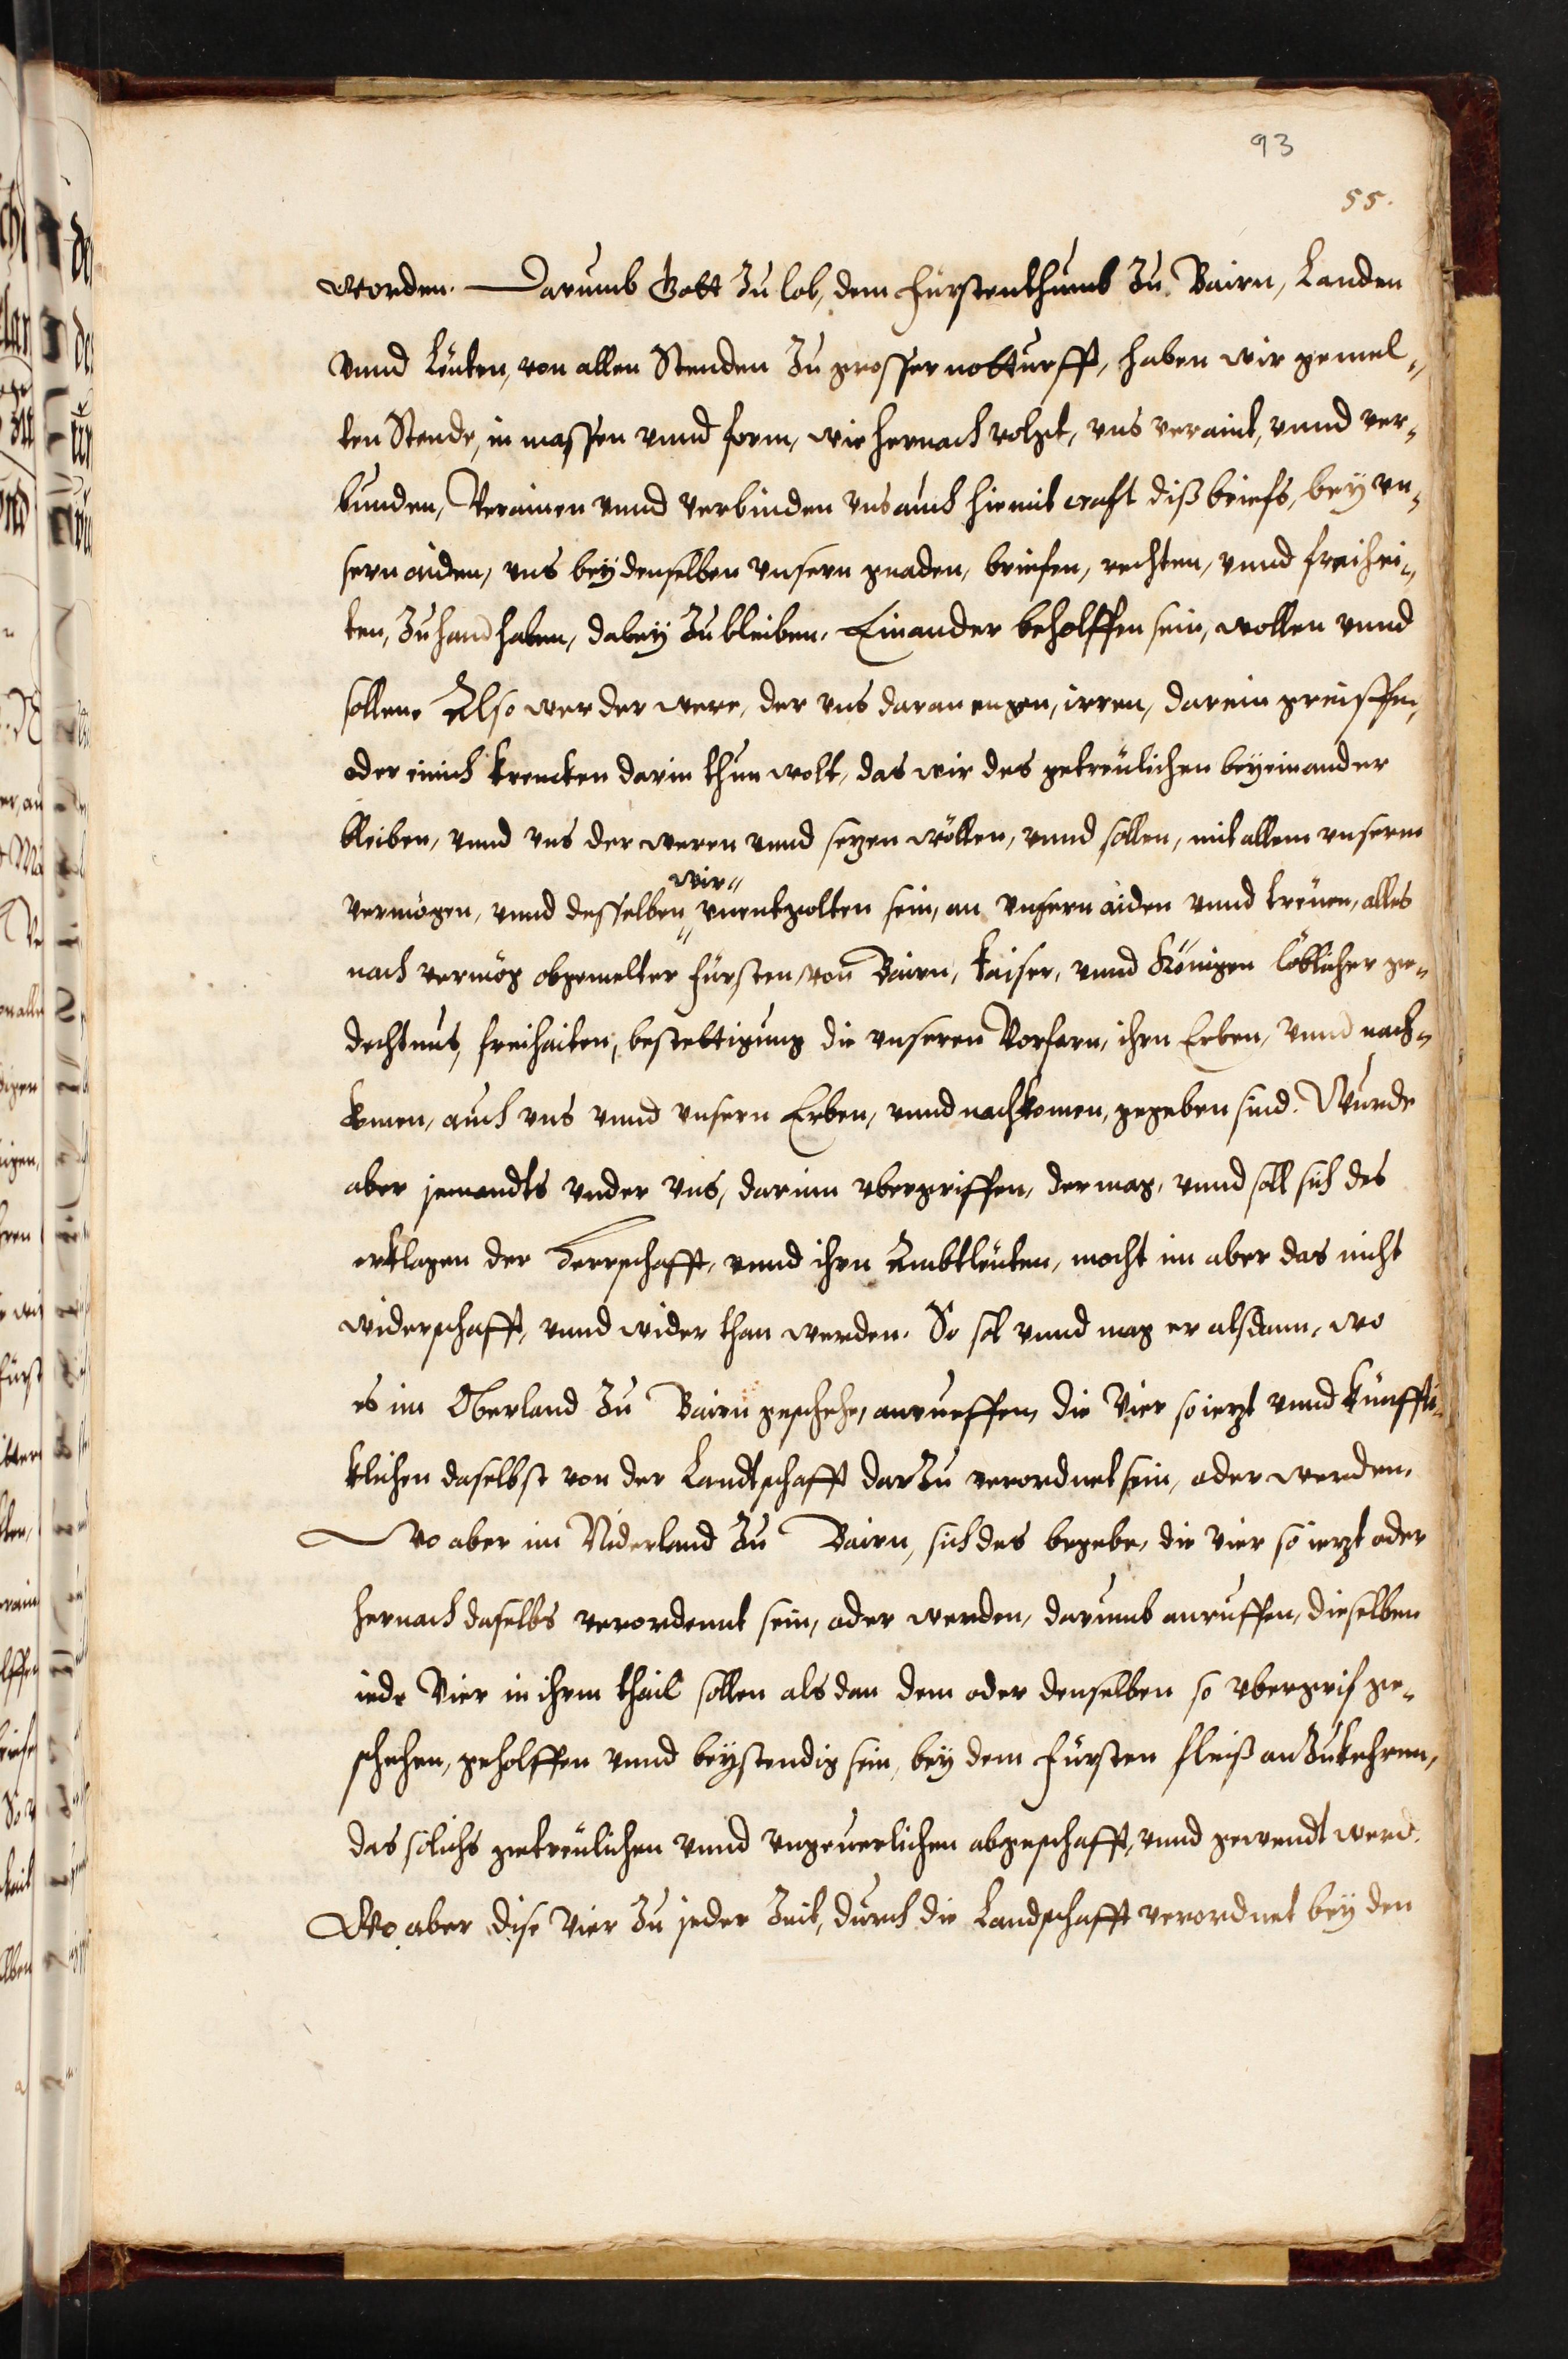 93
55.
worden. Darumb Gott zu lob, dem Fürstenthumb zu Bairn, Landen
vnnd Leuten, von allen Stenden zu grosser notturfft, haben wir gemel-
ten Stende, in massen vnnd form, wie hernach volgt, vns veraint, vnnd ver-
bunden, Verainen vnnd verbinden vns auch hiemit craft diß briefs, bey vn-
sern aiden, vns bey denselben vnsern gnaden, briefen, rechten, vnnd freihei-
ten, zu handhaben, dabey zubleiben, Einander beholffen sein, wollen vnnd
sollen. Also wer der were, der vns daran engen, irren, darein greiffen,
oder einich krencken darin thun wolt, das wir des getreulichen beyeinander
bleiben, vnnd vns der weren vnnd sezen wöllen, vnnd sollen, mit allem vnserm
wir
vermögen, vnnd desselben vnentgolten sein, an vnsern aiden vnnd treuen, alles
nach vermög obgemelter Fürsten von Bairn, kaiser, vnnd Königen löblicher ge-
dechtnus, freihaiten, bestettigung die vnseren Vorfarn, ihrn Erben, vnnd nach-
komen, auch vns vnnd vnsern Erben, vnnd nachkomen, gegeben sind. Wurde
aber jemandts vnder vns, darinn vbergriffen, der mag, vnnd soll sich des
erklagen der Herrschafft, vnnd ihrn Ambtleuten, mocht im aber das nicht
widerschafft, vnnd wider than werden. So sol vnnd mag er alsdann, wo
es im Oberland zu Bairn geschehe, anrueffen, die Vier so iezt vnnd künffti-
klichen daselbst von der Landtschafft darzu verordnet sein, oder werden.
Wo aber im Niderland zu Bairn, sich des begebe, die vier so iezt oder
hernach daselbs verordennt sein, oder werden, darumb anruffen, dieselben
iede Vier in ihrm thail sollen als dan dem oder denselben so vbergrif ge-
schehen, geholffen vnnd beystendig sein, bey dem Fürsten fleiß anzukehren,
das solichs getreulichen vnnd vngeuerlichen abgeschafft, vnnd gewendt werd.
Wo aber dise Vier zu jeder Zeit, durch die Landschafft verordnet bey den